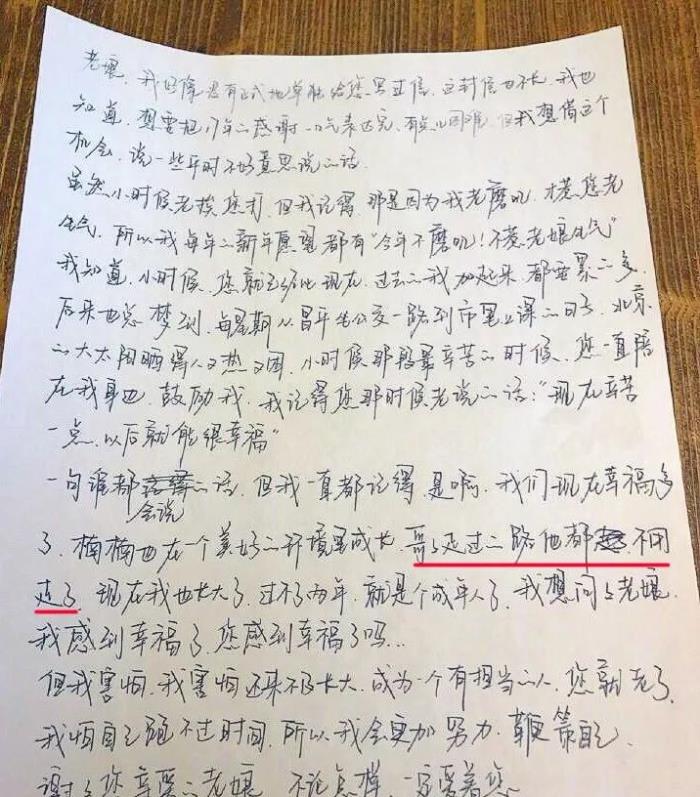 老娘，我好像没有正式地单独给您写过信，这封信也不长，我也
知道，想要把17年的感谢一口气表达完，有点儿困难，但我想借这个
机会，说一些平时不好意思说的话。
虽然小时候老挨您打，但我记得，那是因为我老磨叽，才惹您老
生气，所以我每年的新年愿望都有“今年不磨叽！不惹老娘生气”
我知道，小时候，您就已经比现在、过去的我加起来都要累的多，
后来也总梦到，每星期从昌平坐公交一路到市里上课的日子，北京
的大太阳晒得人又热又困，小时候那段最辛苦的时候，您一直陪
在我身边，鼓励我，我记得您那时候老说的话：“现在辛苦
一点，以后就能很幸福”
一句谁都会说的话，但我一直都记得，是啊，我们现在幸福多
了，楠楠也在一个美好的环境里成长，哥哥走过的路他都不用
走了，现在我也长大了，过不了两年，就是个成年人了，我想问问老娘，
我感到幸福了，您感到幸福了吗…
但我害怕，我害怕还来不及长大，成为一个有担当的人，您就老了，
我怕自己跑不过时间，所以我会更加努力，鞭策自己，
谢谢您亲爱的老娘，不论怎样，一定爱着您